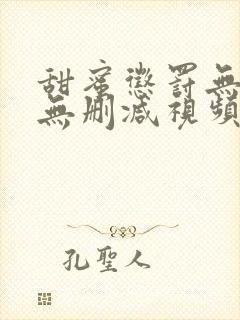 甜蜜懲罰無
無刪減視頻
孔聖人